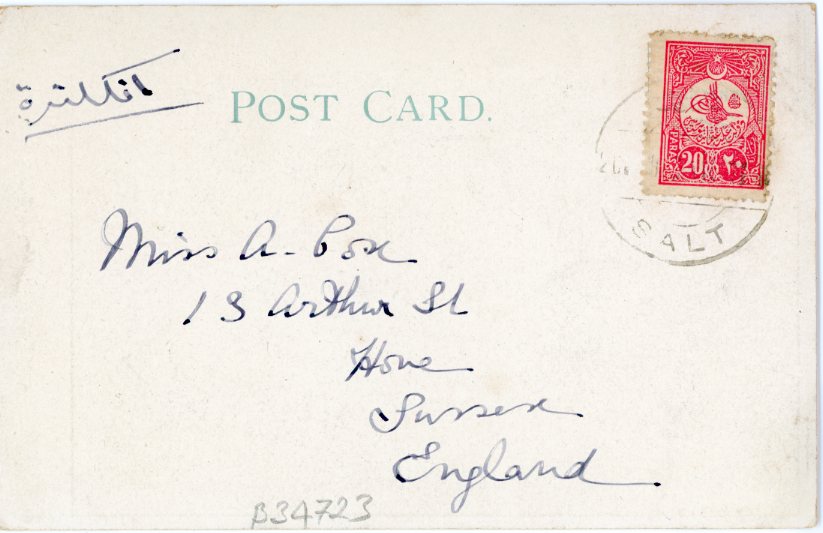 انكلترة
POST CARD.
PARAS
20 ٢٠
SALT
Miss A. Cox
13 Arthur St
Hove
Sussex
England
B34723